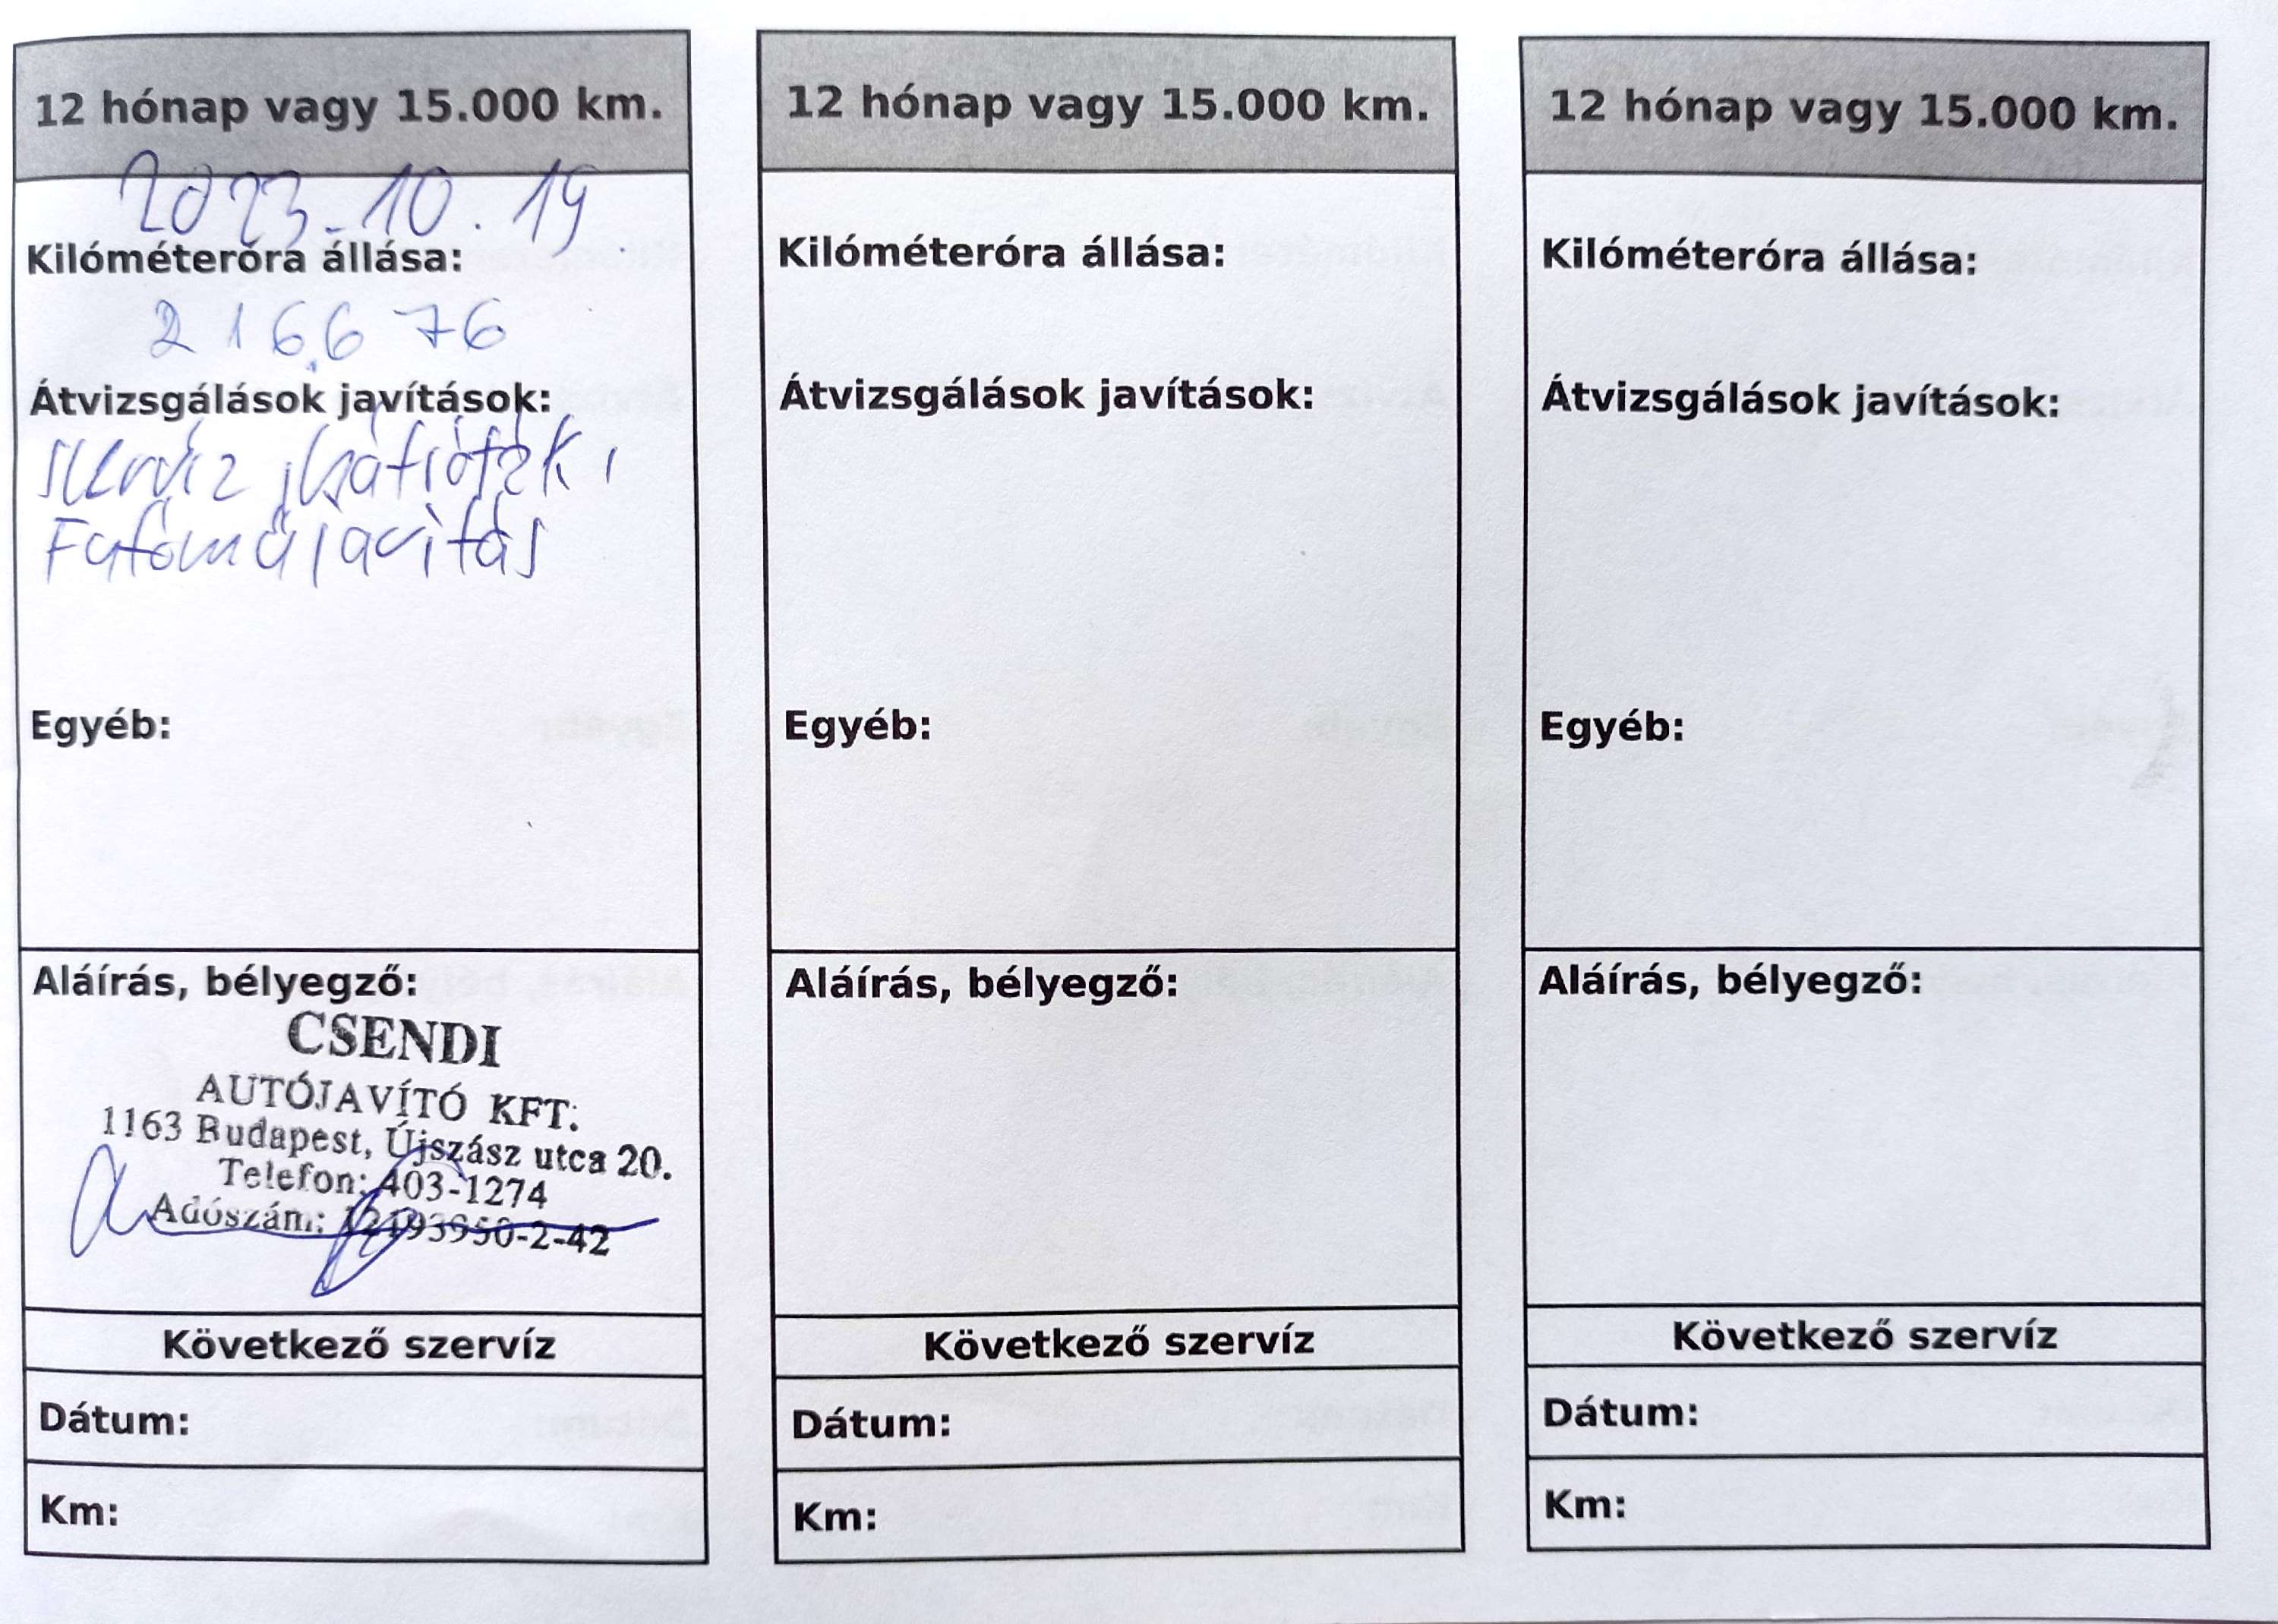 12 hónap vagy 15.000 km.
2023.10.19.
Kilóméteróra állása:
216.676
Átvizsgálások javítások:
szerviz, hátfófék,
Futómű javítás
Egyéb:
Aláírás, bélyegző:
CSENDI
AUTÓJAVÍTÓ KFT.
1163 Budapest, Újszász utca 20.
Telefon: 403-1274
Adószám: 12193950-2-42
Következő szervíz
Dátum:
Km:
12 hónap vagy 15.000 km.
Kilóméteróra állása:
Átvizsgálások javítások:
Egyéb:
Aláírás, bélyegző:
Következő szervíz
Dátum:
Km:
12 hónap vagy 15.000 km.
Kilóméteróra állása:
Átvizsgálások javítások:
Egyéb:
Aláírás, bélyegző:
Következő szervíz
Dátum:
Km: